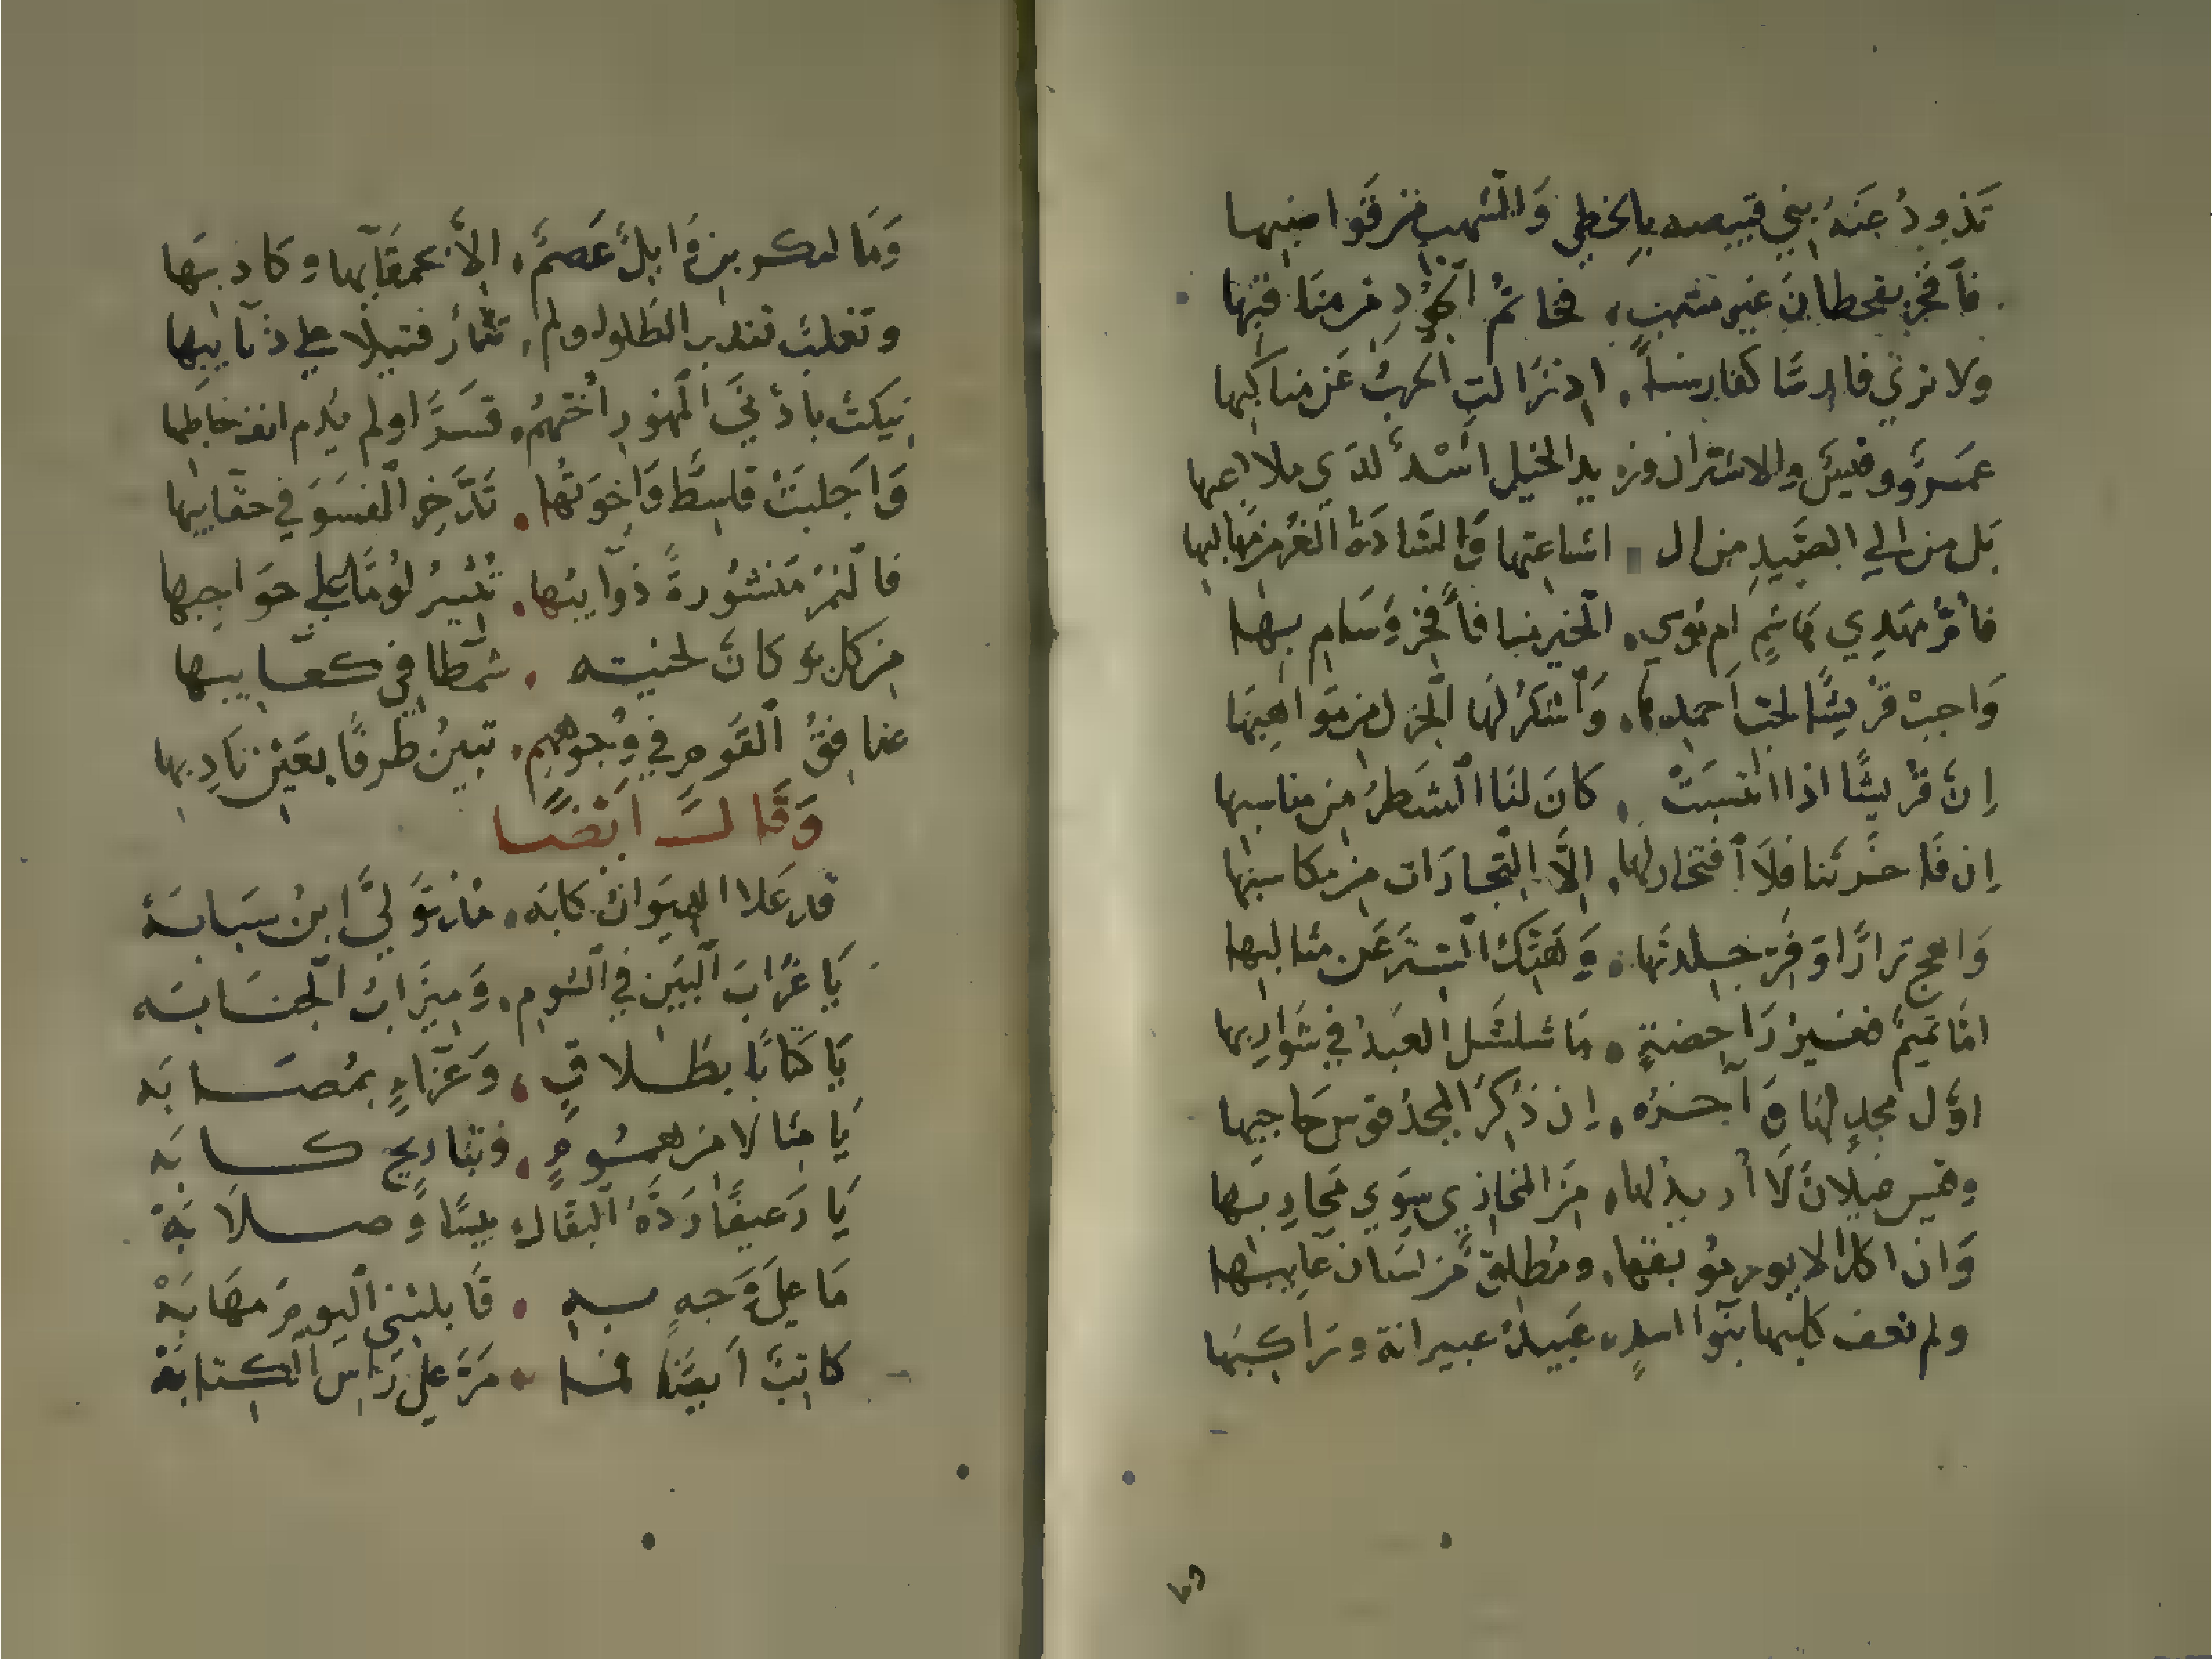 تَذودُ عَنهُ بني قبيصه بالخطي وَالشهب من قَواضبها
فَافخر بقحطان غير مكتئب فحاتمُ الجُودِ من مناقبها
ولا ترى فارسًا كفارسها اذ زالتِ الحربُ عن مناكبها
عمرٌو وقيسٌ والاشتران وزيد الخيل اسْدٌ لدي ملاعبها
بَل من الي الصِّيدِ من ال اشاعثها وَالسَّادَة الغُرّ من مهالبها
وَاحبِبْ قُريشًا لحب احمدها وَاشكُرْ لهَا الجزل من مَواهِبها
اِنَّ قُريشًا اذا انتسبَتْ كَانَ لنَا الشَطرُ من مناسبها
اِن فَاخَرتنا فَلا اَفتخار لها اِلَّا التِّجارَات من مكاسبها
وَاهج نزارًا وَافرِ جلدتها وَهَتّك السِّترَ عَن مثالبها
امّا تَميمٌ فغيرُ رَاحضةٍ مَا شلشَل العَبدُ في شَوارِبها
اوَّل مجدٍ لهَا وَآخرُه اِن ذُكِرَ المجدُ قوس حَاجبها
وقيس عيلانَ لَا اُريد لها مِنَ المخازي سِوَي مُحَارِبها
وَان اكل الايور موبقها ومُطلِق من لسَان عَايبها
ولم تعف كلبها بَنُوا اسدٍ عَبيدُ عيرانة وَرَاكبها
وَمَا لبكر بن وَايلٍ عصَمٌ اِلّا بحمقَآيها وكاذبها
وتغلبٌ تندب الطلول ولم تثأر قتيلا علي ذنَآيبها
نِيكَتْ بأدنَي المهُورِ اُختهُم قسرًا ولم يُدم انف خاطبها
وَاَجلبَتْ قاسِطٌ وَاِخوَتُها تَدَّخِر الفَسْوَ في حقايبها
فالنمرُ مَنشُورةً ذَوآيبُها تُثيرُ لُومًا علي حوَاجبها
من كل كانَّ لحيته
عنافقُ القَومِ في وُجوههم تبينُ طرفًا بعَين نَادِبها
وَقَالَ اَيْضًا
قد عَلا الديوان كآبَه مُذ تَوَلَّي ابنُ سَبابَهْ
يَا غُرَابَ البَين في الشوم وَميزَابَ الجنَابَه
يَا كتَابًا بِطَلاقٍ وَعَزاءٍ بمُصَابَه
يَا مثالا من همُومٍ وتباريح كآبَه
يَا رَغيفًا رَدَّهُ البقّال يبسًا وَصلَابَه
مَا عَلي وَجهٍ بِهِ قَابلتني اليومَ مهَابَهْ
كاتبٌ اَيضًا فما مَرَّ علي رَاس الكتابَهْ